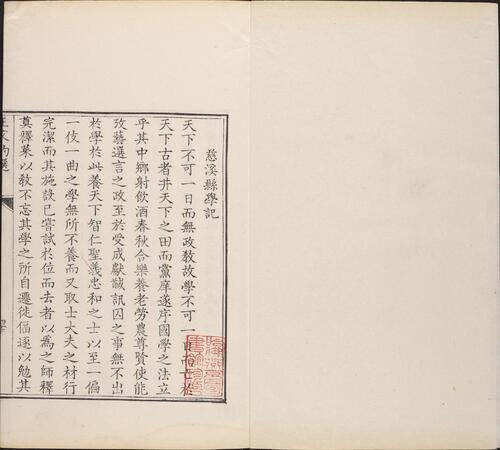 慈溪縣學記
天下不可一日而無政教故學不可一日而亡於
天下古者井天下之田而黨庠遂序國學之法立
乎其中鄉射飲酒春秋合樂養老勞農尊賢使能
攷藝選言之政至於受成獻馘訊囚之事無不出
於學於此養天下智仁聖義忠和之士以至一偏
一伎一曲之學無所不養而又取士大夫之材行
完潔而其施設已嘗試於位而去者以為之師釋
奠釋菜以教不忘其學之所自遷徙偪逐以勉其